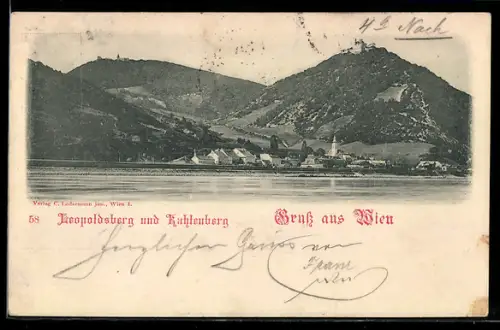 4ᵗ Nach
Verlag C. Ledermann jun., Wien I.
58 Leopoldsberg und Kahlenberg Gruß aus Wien
Herzlichen Gruß von
Franz